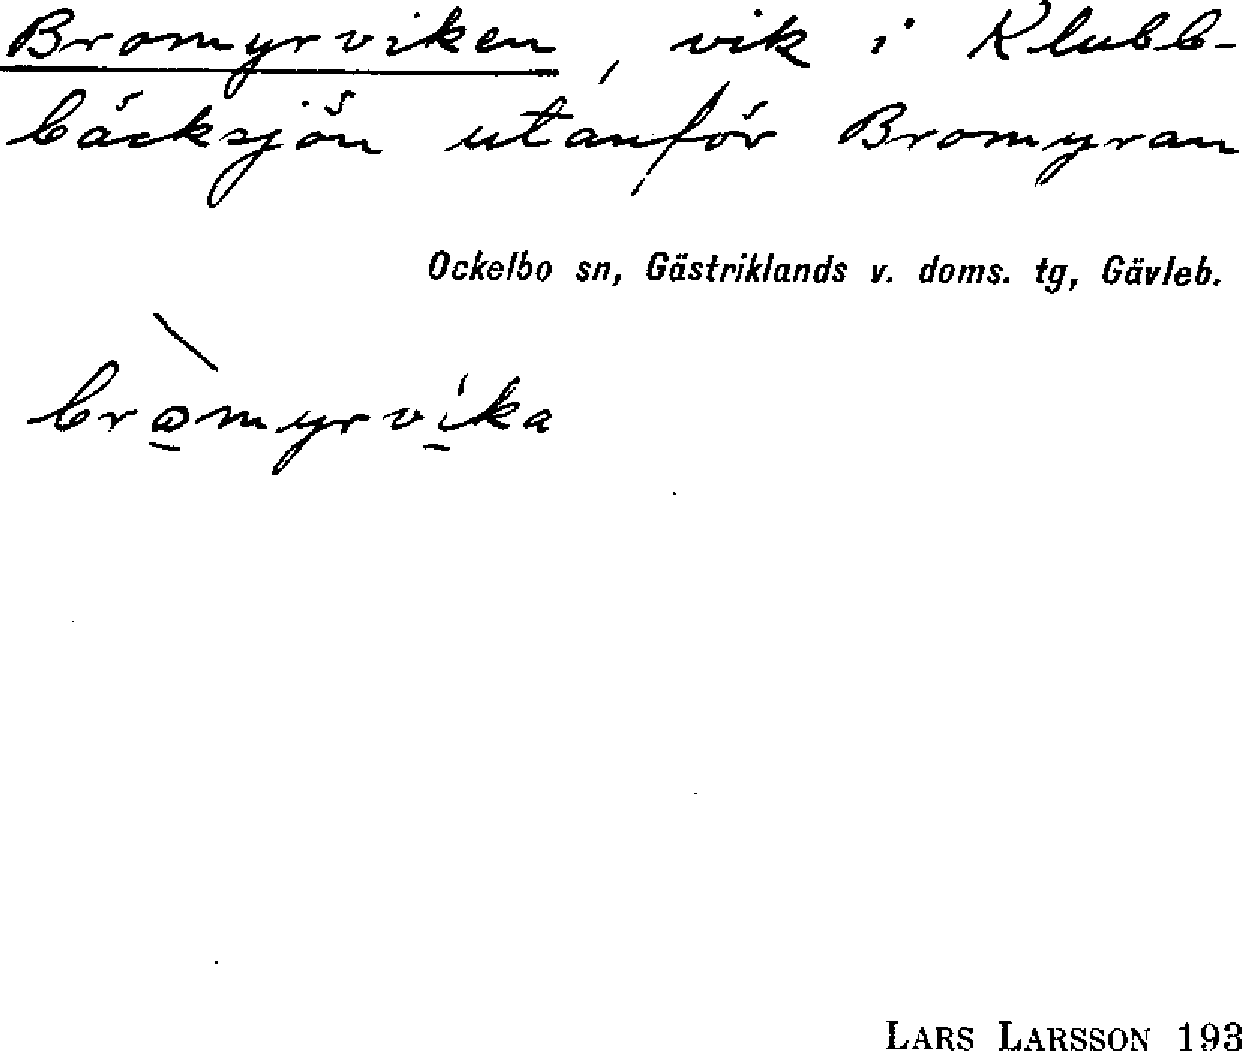 Bromyrviken, vik i Klubb-
bäcksjön utanför Bromyran
Ockelbo sn, Gästriklands v. doms. tg, Gävleb.
bròmyrvíka
LARS LARSSON 193